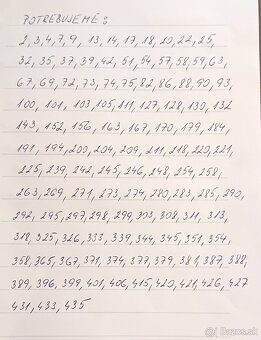 POTREBUJEME:
2, 3, 4, 7, 9, 13, 14, 17, 18, 20, 22, 25,
32, 35, 37, 39, 42, 51, 54, 57, 58, 59, 63,
67, 69, 72, 73, 74, 75, 82, 86, 88, 90, 93,
100, 101, 103, 105, 111, 127, 128, 130, 132
143, 152, 156, 163, 167, 170, 179, 184
191, 194, 200, 204, 209, 211, 218, 220, 221,
225, 239, 242, 245, 246, 248, 254, 258,
263, 269, 271, 273, 274, 280, 283, 285, 290,
292, 295, 297, 298, 299, 303, 308, 311, 313,
318, 325, 326, 333, 339, 344, 345, 351, 354,
358, 365, 367, 371, 374, 377, 379, 381, 387, 388,
389, 396, 399, 401, 406, 415, 420, 421, 426, 427
431, 433, 435
Bazos.sk